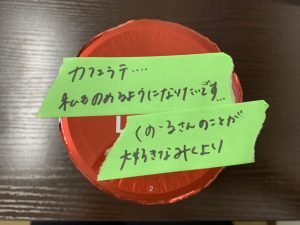 カフェラテ....
私ものめるようになりたいです...
くのーるさんのことが
大好きなみくより
2